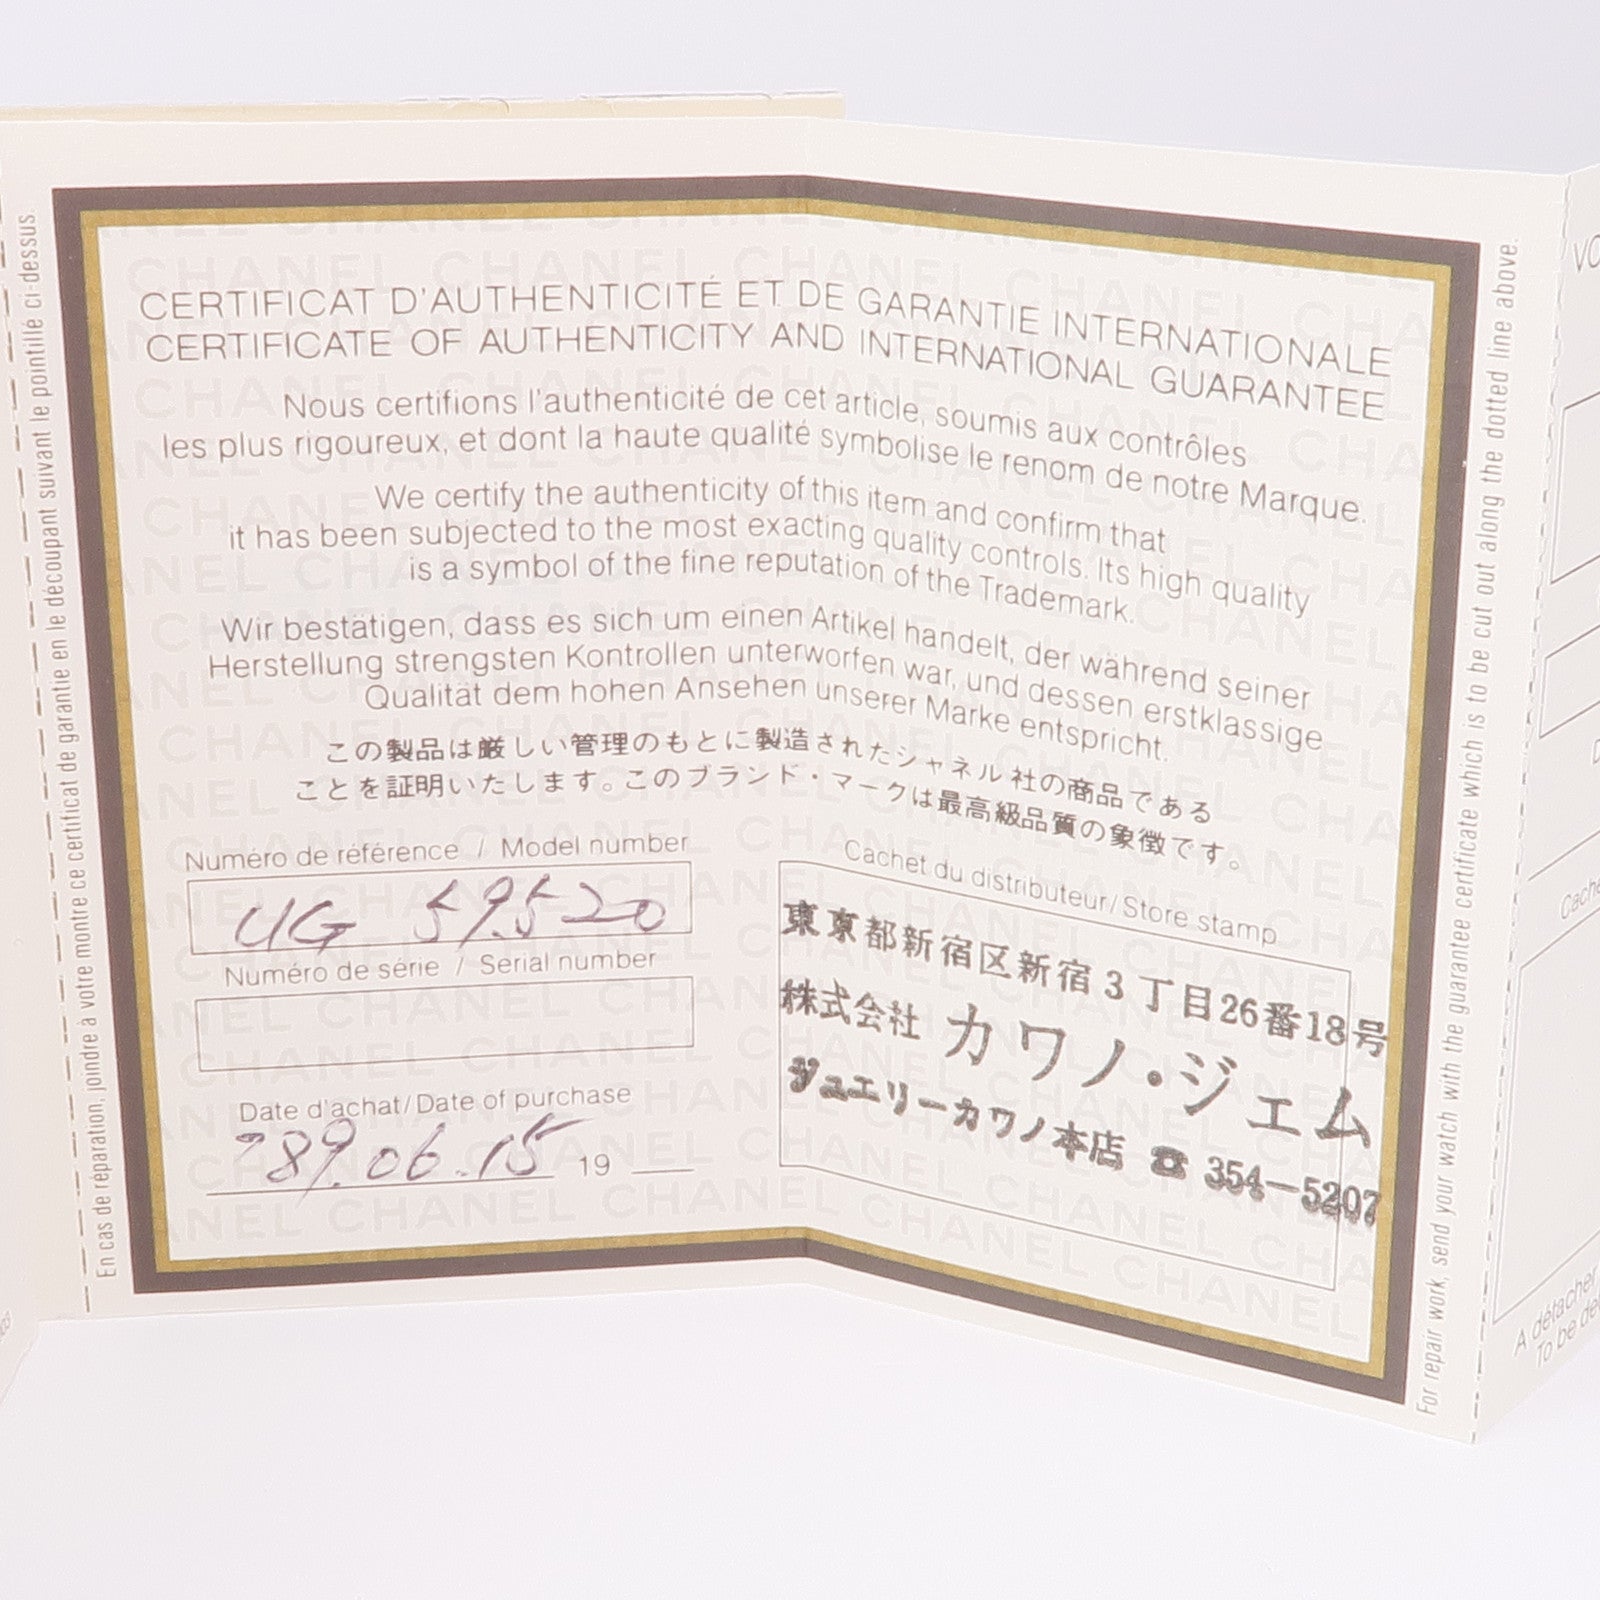 CERTIFICAT D'AUTHENTICITÉ ET DE GARANTIE INTERNATIONALE
CERTIFICATE OF AUTHENTICITY AND INTERNATIONAL GUARANTEE
Nous certifions l'authenticité de cet article, soumis aux contrôles
les plus rigoureux, et dont la haute qualité symbolise le renom de notre Marque.
We certify the authenticity of this item and confirm that
it has been subjected to the most exacting quality controls. Its high quality
is a symbol of the fine reputation of the Trademark.
Wir bestätigen, dass es sich um einen Artikel handelt, der während seiner
Herstellung strengsten Kontrollen unterworfen war, und dessen erstklassige
Qualität dem hohen Ansehen unserer Marke entspricht.
この製品は厳しい管理のもとに製造されたシャネル社の商品である
ことを証明いたします。このブランド・マークは最高級品質の象徴です。
Numéro de référence / Model number
UG 59520
Numéro de série / Serial number
Date d'achat/Date of purchase
'89.06.15 19
Cachet du distributeur/Store stamp
東京都新宿区新宿3丁目26番18号
株式会社 カワノ・ジェム
ジュエリーカワノ本店 ☎ 354-5207
En cas de réparation, joindre à votre montre ce certificat de garantie en le découpant suivant le pointillé ci-dessus
For repair work, send your watch with the guarantee certificate which is to be cut out along the dotted line above.
A détacher
To be